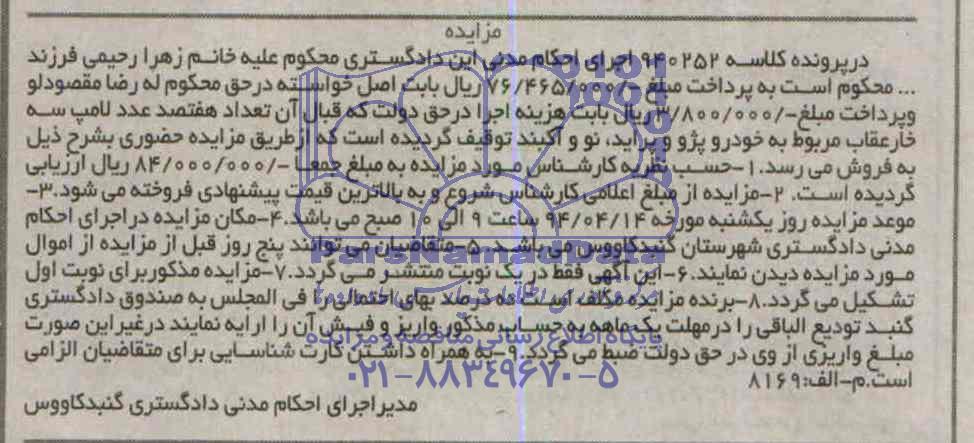 مزایده
درپرونده کلاسه ۹۴۰۲۵۲ اجرای احکام مدنی این دادگستری محکوم علیه خانم زهرا رحیمی فرزند
... محکوم است به پرداخت مبلغ -/۷۶/۴۶۵/۰۰۰ ریال بابت اصل خواسته درحق محکوم له رضا مقصودلو
وپرداخت مبلغ-/۳/۸۰۰/۰۰۰ ریال بابت هزینه اجرا درحق دولت که قبال آن تعداد هفتصد عدد لامپ سه
خارعقاب مربوط به خودرو پژو و پراید، نو و آکبند توقیف گردیده است که ازطریق مزایده حضوری بشرح ذیل
به فروش می رسد.۱-حسب نظریه کارشناس مورد مزایده به مبلغ جمعا -/۸۴/۰۰۰/۰۰۰ ریال ارزیابی
گردیده است. ۲-مزایده از مبلغ اعلامی کارشناس شروع و به بالاترین قیمت پیشنهادی فروخته می شود.۳-
موعد مزایده روز یکشنبه مورخه ۹۴/۰۴/۱۴ ساعت ۹ الی ۱۰ صبح می باشد.۴-مکان مزایده دراجرای احکام
مدنی دادگستری شهرستان گنبدکاووس می باشد. ۵-متقاضیان می توانند پنج روز قبل از مزایده از اموال
مورد مزایده دیدن نمایند.۶-این آگهی فقط در یک نوبت منتشر می گردد.۷-مزایده مذکوربرای نوبت اول
تشکیل می گردد.۸-برنده مزایده مکلف است ده درصد بهای احتمالی را فی المجلس به صندوق دادگستری
گنبد تودیع الباقی را درمهلت یک ماهه به حساب مذکور واریز و فیش آن را ارایه نمایند درغیراین صورت
مبلغ واریزی از وی در حق دولت ضبط می گردد.۹-به همراه داشتن کارت شناسایی برای متقاضیان الزامی
است.م-الف:۸۱۶۹
مدیراجرای احکام مدنی دادگستری گنبدکاووس
ParsNamadData
پایگاه اطلاع رسانی مناقصه و مزایده
۰۲۱-۸۸۳۴۹۶۷۰-۵